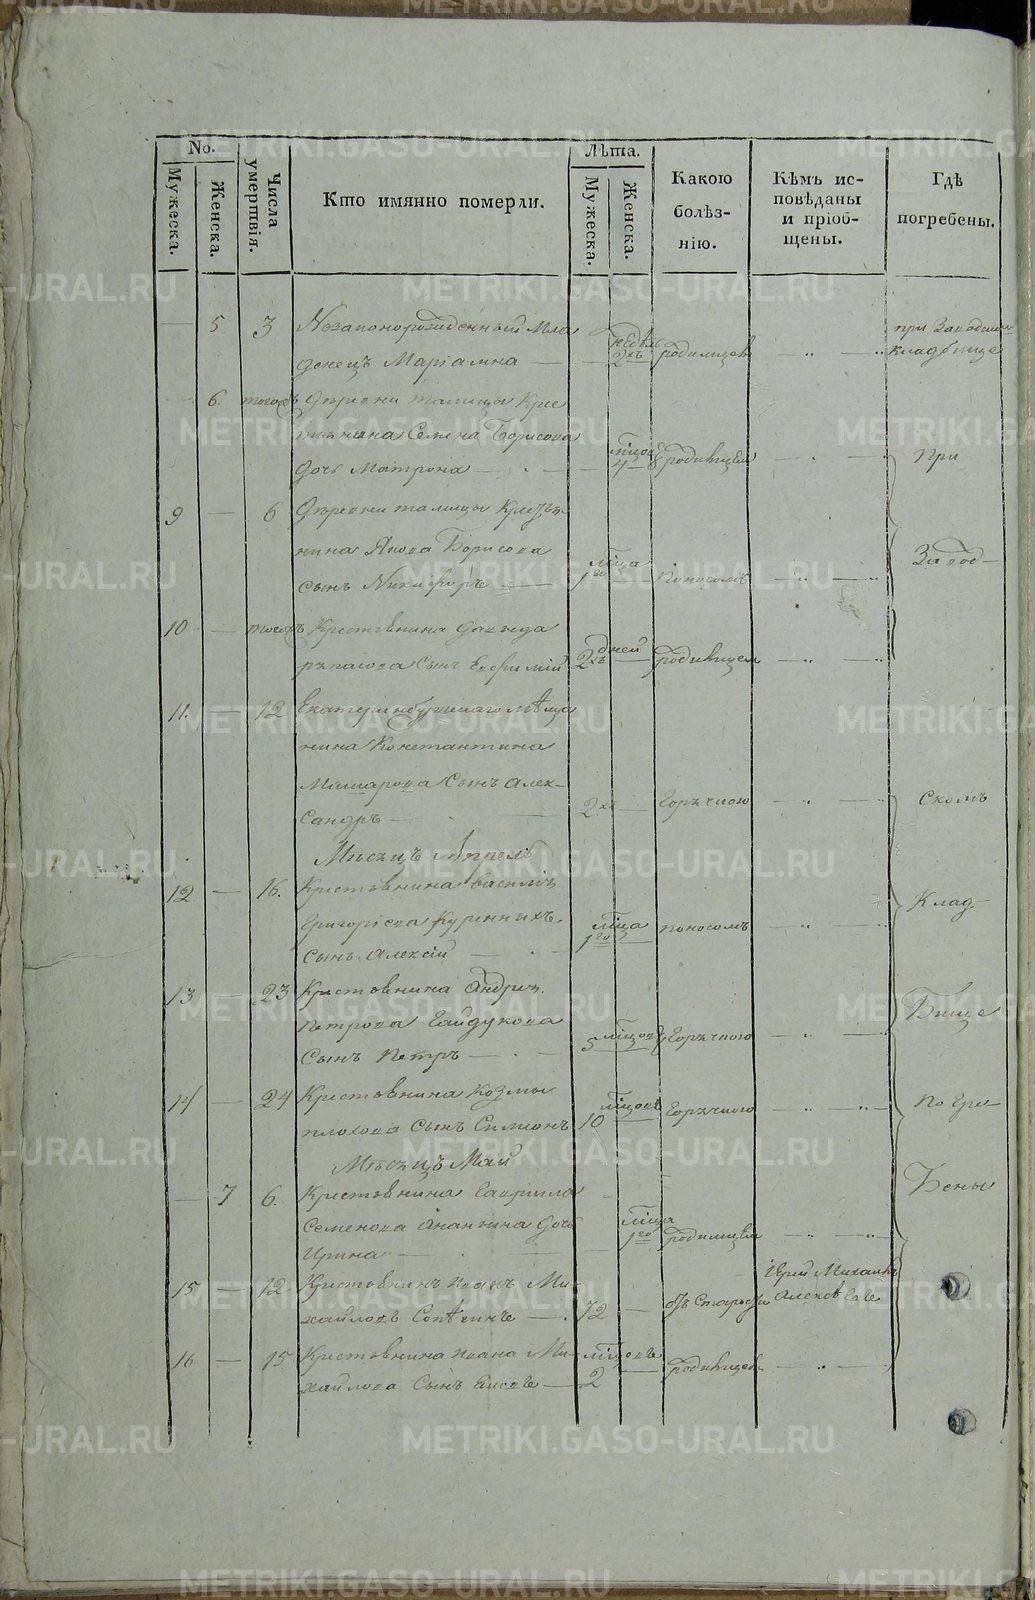 METRIKI.GASO-URAL.RU
No.
Мужеска.
Женска.
Числа умертвія.
Кто имянно померли.
Лѣта.
Мужеска.
Женска.
Какою болѣз-
нію.
Кѣмъ ис-
повѣданы
и пріоб-
щены.
Гдѣ
погребены.
— 5 3 Незаконорожденный мла
денецъ Маріамна — недѣль 2хъ родимцемъ — „ — при Заводском
кладбище
— 6. тогожъ Деревни Талицы Крес
тьянина Семена Борисова
дочь Матрона — 4 родимцемъ — при
9 — 6 Деревни Талицы Крестья-
нина Якова Борисова
сынъ Никифоръ — 1го мѣсяца поносомъ — Завод-
10 — тогожъ Крестьянина Давыда
сынъ Евфимій 2хъ дней — родимцем —
11. — 12 Екатеринбургскаго мѣща
нина Константина
сынъ Алек-
сандръ — 2хъ — Горячкою — скомъ
Мѣсяцъ Апрель
12 — 16. Крестьянина Василія
Григорьева Куренныхъ
сынъ Алексій — 1го мѣсяца поносомъ — Клад-
13 — 23 Крестьянина Андрея
Петрова Гайдукова
Сынъ Петръ — 5 Горячкою — бище
14 — 24 Крестьянина Козмы
Плохова сынъ Симеонъ 10 Горячкою — погре-
Мѣсяцъ Май
— 7 6. Крестьянина Гаврила
Семенова Ананьина дочь
Ирина — 1го родимцем — бены
15 — 12 Крестьянинъ Иоанъ Ми-
хайловъ — 72 — отъ Старости Іерей Михаилъ
Алексѣевъ
16 — 15 Крестьянина Иоана Ми-
хайлова Сынъ — 2 родимцемъ —